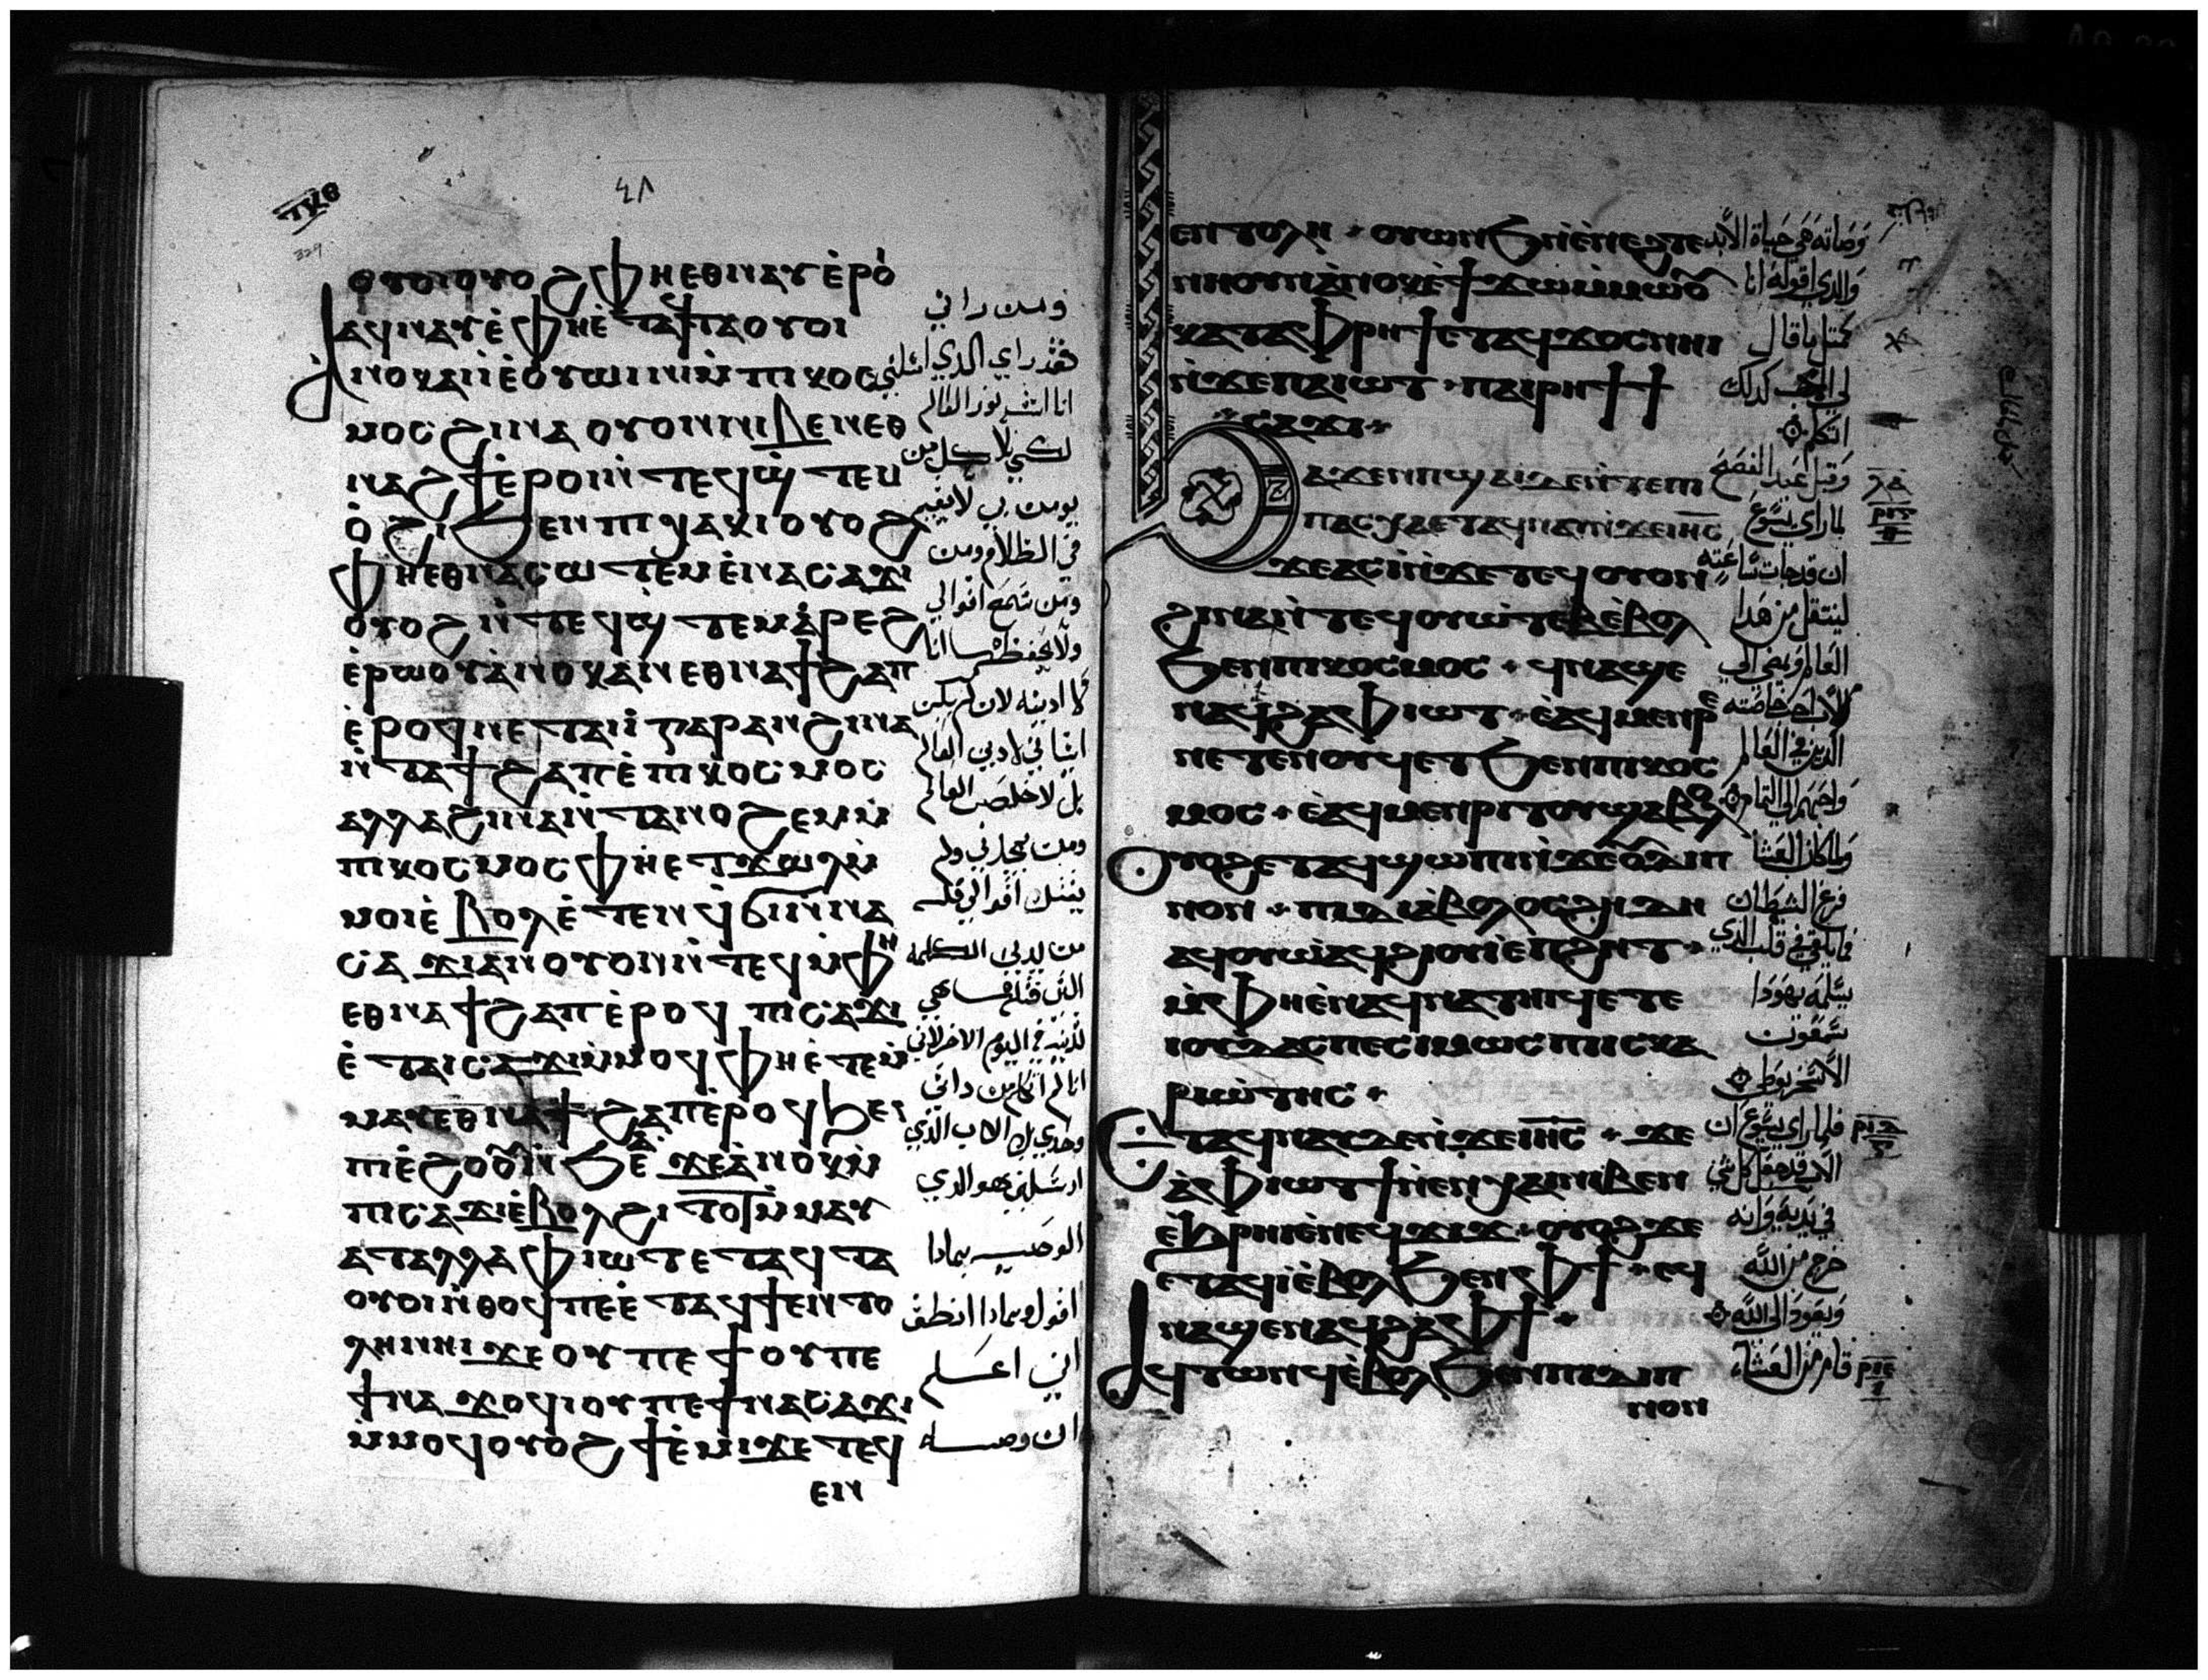 ⲧⲕⲑ
329
٤٨
ⲟⲩⲟⲓ ⲟⲩⲟϩ ⲫⲏ ⲉⲑⲛⲁⲩ ⲉ̀ⲣⲟ̀
ⲁϥⲛⲁⲩ ⲉ̀ⲫⲏ ⲉ̀ⲧⲁϥⲧⲁⲟⲩⲟⲓ
ⲁ̀ⲛⲟⲕ ⲁⲓⲓ̀ ⲉ̀ⲟⲩⲱⲓⲛⲓ ⲙ̀ⲡⲓⲕⲟⲥ
ⲙⲟⲥ ϩⲓⲛⲁ ⲟⲩⲟⲛ ⲛⲓⲃⲉⲛ ⲉⲑ
ⲛⲁϩϯ ⲉ̀ⲣⲟⲓ ⲛ̀ⲧⲉϥϣ̀ⲧⲉⲙ
ⲟ̀ϩⲓ ϧⲉⲛ ⲡⲓⲭⲁⲕⲓ ⲟⲩⲟϩ
ⲫⲏ ⲉⲑⲛⲁⲥⲱⲧⲉⲙ ⲉ̀ⲛⲁⲥⲁϫⲓ
ⲟⲩⲟϩ ⲛ̀ⲧⲉϥϣ̀ⲧⲉⲙⲁ̀ⲣⲉϩ
ⲉ̀ⲣⲱⲟⲩ ⲁ̀ⲛⲟⲕ ⲁⲛ ⲉⲑⲛⲁϯϩⲁⲡ
ⲉ̀ⲣⲟϥ ⲛⲉⲧⲁⲓⲓ̀ ⲅⲁⲣ ⲁⲛ ϩⲓⲛⲁ
ⲛ̀ⲧⲁϯϩⲁⲡ ⲉ̀ⲡⲓⲕⲟⲥⲙⲟⲥ
ⲁⲗⲗⲁ ϩⲓⲛⲁ ⲛ̀ⲧⲁⲛⲟϩⲉⲙ ⲙ̀
ⲡⲓⲕⲟⲥⲙⲟⲥ ⲫⲏ ⲉⲧϫⲱⲗ ⲙ̀
ⲙⲟⲓ ⲉ̀ⲃⲟⲗ ⲉ̀ⲧⲉⲛϥϭⲓ ⲛ̀ⲛⲁ
ⲥⲁϫⲓ ⲁⲛ ⲟⲩⲟⲛ ⲛ̀ⲧⲉϥ ⲙ̀ⲫⲏ
ⲉⲑⲛⲁϯϩⲁⲡ ⲉ̀ⲣⲟϥ ⲡⲓⲥⲁϫⲓ
ⲉ̀ⲧⲁⲓⲥⲁϫⲓ ⲙ̀ⲙⲟϥ ⲫⲏ ⲉ̀ⲧⲉⲙ̀
ⲙⲁⲩ ⲉⲑⲛⲁϯϩⲁⲡ ⲉ̀ⲣⲟϥ ϧⲉⲛ
ⲡⲓⲉ̀ϩⲟⲟⲩ ⲛ̀ϧⲁⲉ̀ ϫⲉ ⲁ̀ⲛⲟⲕ ⲙ̀
ⲡⲓⲥⲁϫⲓ ⲉ̀ⲃⲟⲗ ϩⲓⲧⲟⲧ ⲙ̀ⲙⲁⲩ
ⲁⲧ ⲁⲗⲗⲁ ⲫⲓⲱⲧ ⲉⲧⲁϥⲧⲁ
ⲟⲩⲟⲓ ⲛ̀ⲑⲟϥ ⲡⲉ ⲉ̀ⲧⲁϥϯ ⲉⲛⲧⲟ
ⲗⲏ ⲛⲏⲓ ϫⲉ ⲟⲩ ⲡⲉ ϯ ⲟⲩ ⲡⲉ
ϯⲛⲁϫⲟϥ ⲓⲟⲩ ⲡⲉ ϯⲛⲁⲥⲁϫⲓ
ⲙ̀ⲙⲟϥ ⲟⲩⲟ̀ϩ ϯⲉ̀ⲙⲓ ϫⲉ ⲧⲉϥ
ⲉⲛ
ومن راني
فقد راي الذي ارسلني
انا اتيت نور العالم
لكي لا كل من
يومن بي لا يقيم
في الظلام ومن
ومن سمع اقوالي
ولا يحفظها انا
ما ادينه لان لم يكن
اتيا في لادين العالم
بل لاخلص العالم
ومن يجحدني ولم
يقبل اقوالي فله
من يدينه الكلمه
التي قلتها هي
تدينه في اليوم الاخر لاني
انا لم اتكلم من داتي
وحدي بل الاب الذي
ارسلني هو الذي
الوصيه بمادا
اقول وبمادا انطق
اني اعلم
ان وصيته
ⲉⲛⲧⲟⲗⲏ + ⲟⲩⲱⲛϧ ⲛ̀ⲉ̀ⲛⲉϩ ⲧⲉ
ⲛⲏ ⲟⲩⲛ ⲁ̀ⲛⲟⲕ ⲉ̀ϯϫⲱ ⲙ̀ⲙⲱⲟⲩ
ⲕⲁⲧⲁ ⲫⲣⲏϯ ⲉⲧⲁϥϫⲟⲥ ⲛⲏⲓ
ⲛ̀ϫⲉ ⲡⲁⲓⲱⲧ + ⲡⲁⲓⲣⲏϯ ϯ
ⲥⲁϫⲓ +
ϧⲁϫⲉⲛ ⲡϣⲁⲓ ⲇⲉ ⲛ̀ⲧⲉ ⲡⲓ
ⲡⲁⲥⲭⲁ ⲉⲧⲁϥⲛⲁⲩ ⲛ̀ϫⲉ ⲓⲏⲥ
ϫⲉ ⲁⲥⲓ̀ ⲛ̀ϫⲉ ⲧⲉϥⲟⲩⲛⲟⲩ
ϩⲓⲛⲁ ⲛ̀ⲧⲉϥⲟⲩⲱ̀ⲧⲉⲃ ⲉ̀ⲃⲟⲗ
ϧⲉⲛ ⲡⲓⲕⲟⲥⲙⲟⲥ + ϥⲛⲁϣⲉ
ⲛⲁϥ ϩⲁ ⲫⲓⲱⲧ + ⲉ̀ⲁϥⲙⲉⲛⲣⲉ
ⲛⲉⲧⲉⲛⲟⲩϥ ⲉⲧϧⲉⲛ ⲡⲓⲕⲟⲥ
ⲙⲟⲥ + ⲉ̀ⲁϥⲙⲉⲛⲣⲓⲧⲟⲩ ϣⲁⲃⲟⲗ
ⲟⲩⲟϩ ⲉⲧⲁϥϣⲱⲡⲓ ⲛ̀ϫⲉ ⲟⲩⲇⲓⲡ
ⲛⲟⲛ + ⲡⲓⲇⲓⲁ̀ⲃⲟⲗⲟⲥ ϩⲏⲇⲏ
ⲁϥⲟⲩⲱ ⲁϥϩⲓⲟⲩⲓ̀ ⲉⲡϩⲏⲧ +
ⲙ̀ⲫⲏ ⲉ̀ⲛⲁϥⲛⲁⲧⲏⲓϥ ⲉⲧⲉ
ⲓⲟⲩⲇⲁⲥ ⲡⲉ ⲥⲓⲙⲱⲛⲟⲥ ⲡⲓⲓⲥⲕⲁ
ⲣⲓⲱ̀ⲧⲏⲥ +
ⲉⲧⲁϥⲛⲁⲩ ⲇⲉ ⲛ̀ϫⲉ ⲓⲏⲥ + ϫⲉ
ⲁ̀ ⲫⲓⲱⲧ ϯ ⲛ̀ⲉⲛⲭⲁⲓ ⲛⲓⲃⲉⲛ
ⲉ̀ϧⲣⲏⲓ ⲉ̀ⲛⲉϥϫⲓϫ + ⲟⲩⲟϩ ϫⲉ
ⲉⲧⲁϥⲓ̀ ⲉ̀ⲃⲟⲗ ϧⲉⲛ ⲫϯ + ⲉϥ
ⲛⲁϣⲉⲛⲁϥ ϩⲁ ⲫϯ +
ⲁϥⲧⲱⲛϥ ⲉ̀ⲃⲟⲗ ϧⲉⲛ ⲡⲓⲇⲓⲡ
ⲛⲟⲛ
وصاته هي حياة الابد
والذي اقوله انا
كمثل ما قال
لي الاب كدلك
اتكلم
وقبل عيد الفصح
لما راي يسوع
ان قد جات ساعته
لينتقل من هدا
العالم ويمضي الي
الاب احب خاصته
الذين في العالم
واحبهم الي التمام
ولما كان العشا
فرغ الشيطان
فيما يلقي في قلب الذي
يسلمه يهودا
سمعون
الاسخريوطي
فلما راي يسوع ان
الاب قد جعل كل شي
في يديه وانه
خرج من الله
ويعود الي الله
قام من العشاء